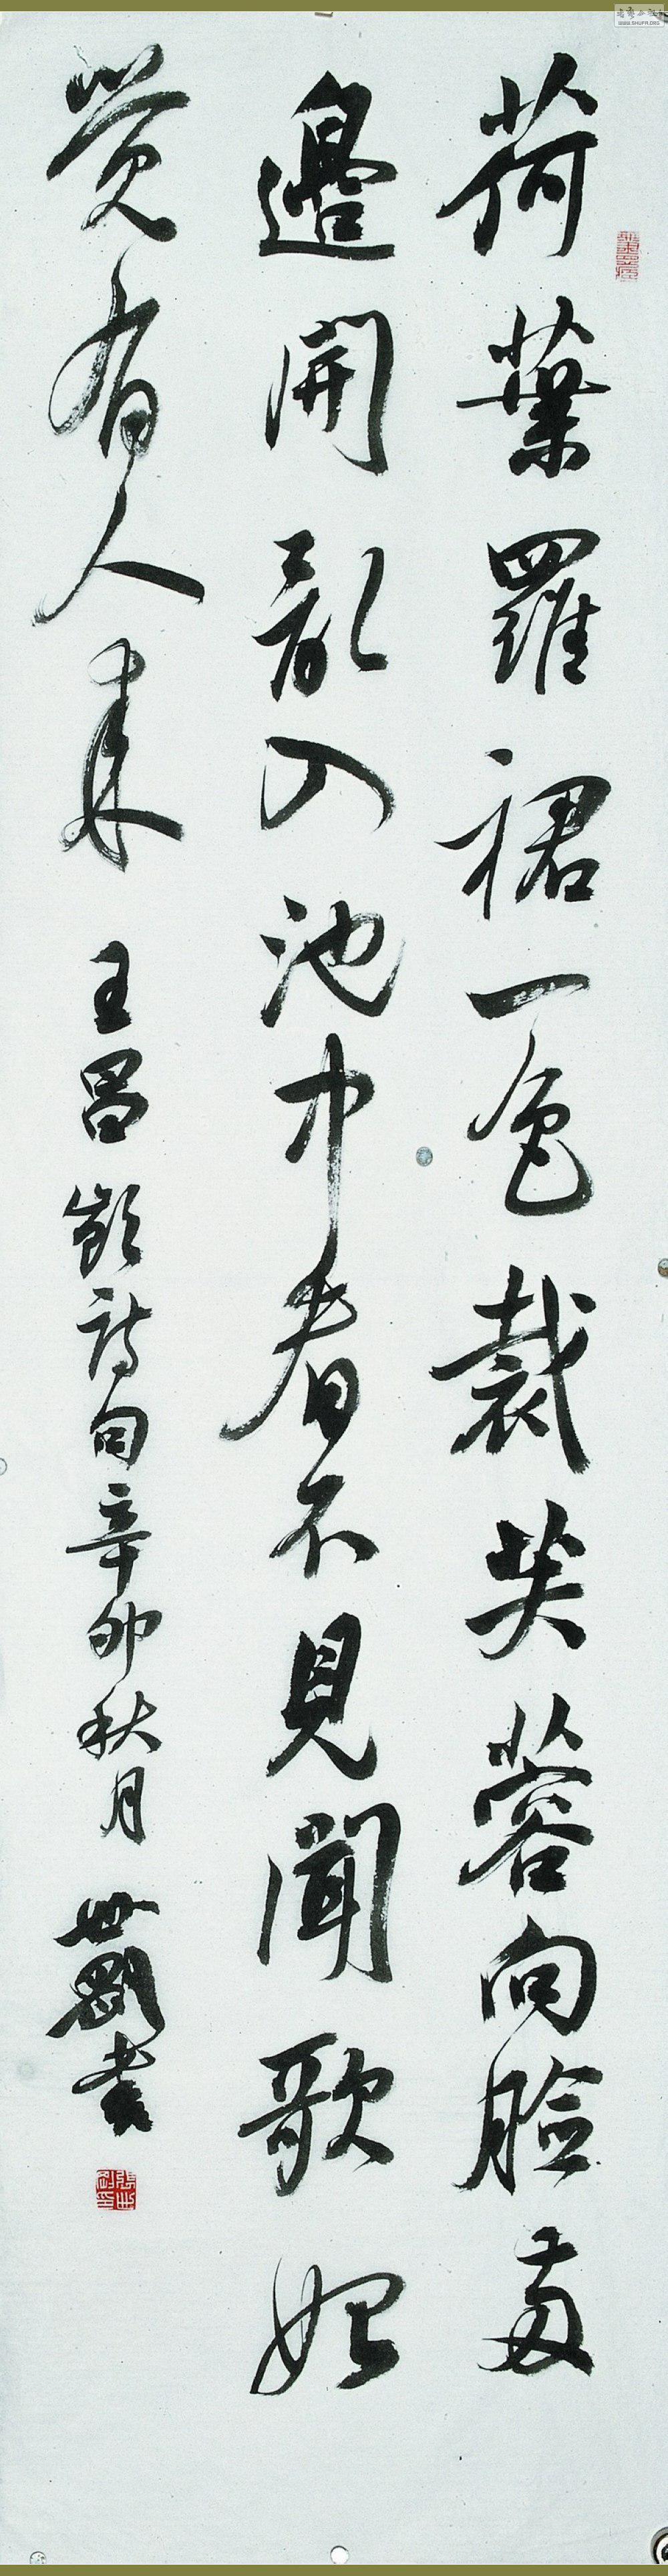 荷葉羅裙一色裁芙蓉向臉兩
邊開亂入池中看不見聞歌始
覺有人來 王昌齡詩句辛卯秋月 世剛書
張世剛印
WWW.SHUFA.ORG